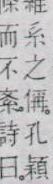 維系之偁。孔穎
條而不紊。詩曰。